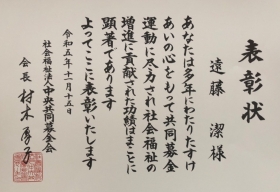 表彰状
遠藤 潔様
あなたは多年にわたりたすけ
あいの心をもって共同募金
運動に尽力され社会福祉の
増進に貢献された功績はまことに
顕著であります
よってここに表彰いたします
令和五年十一月十五日
社会福祉法人中央共同募金会
会長 村木厚子